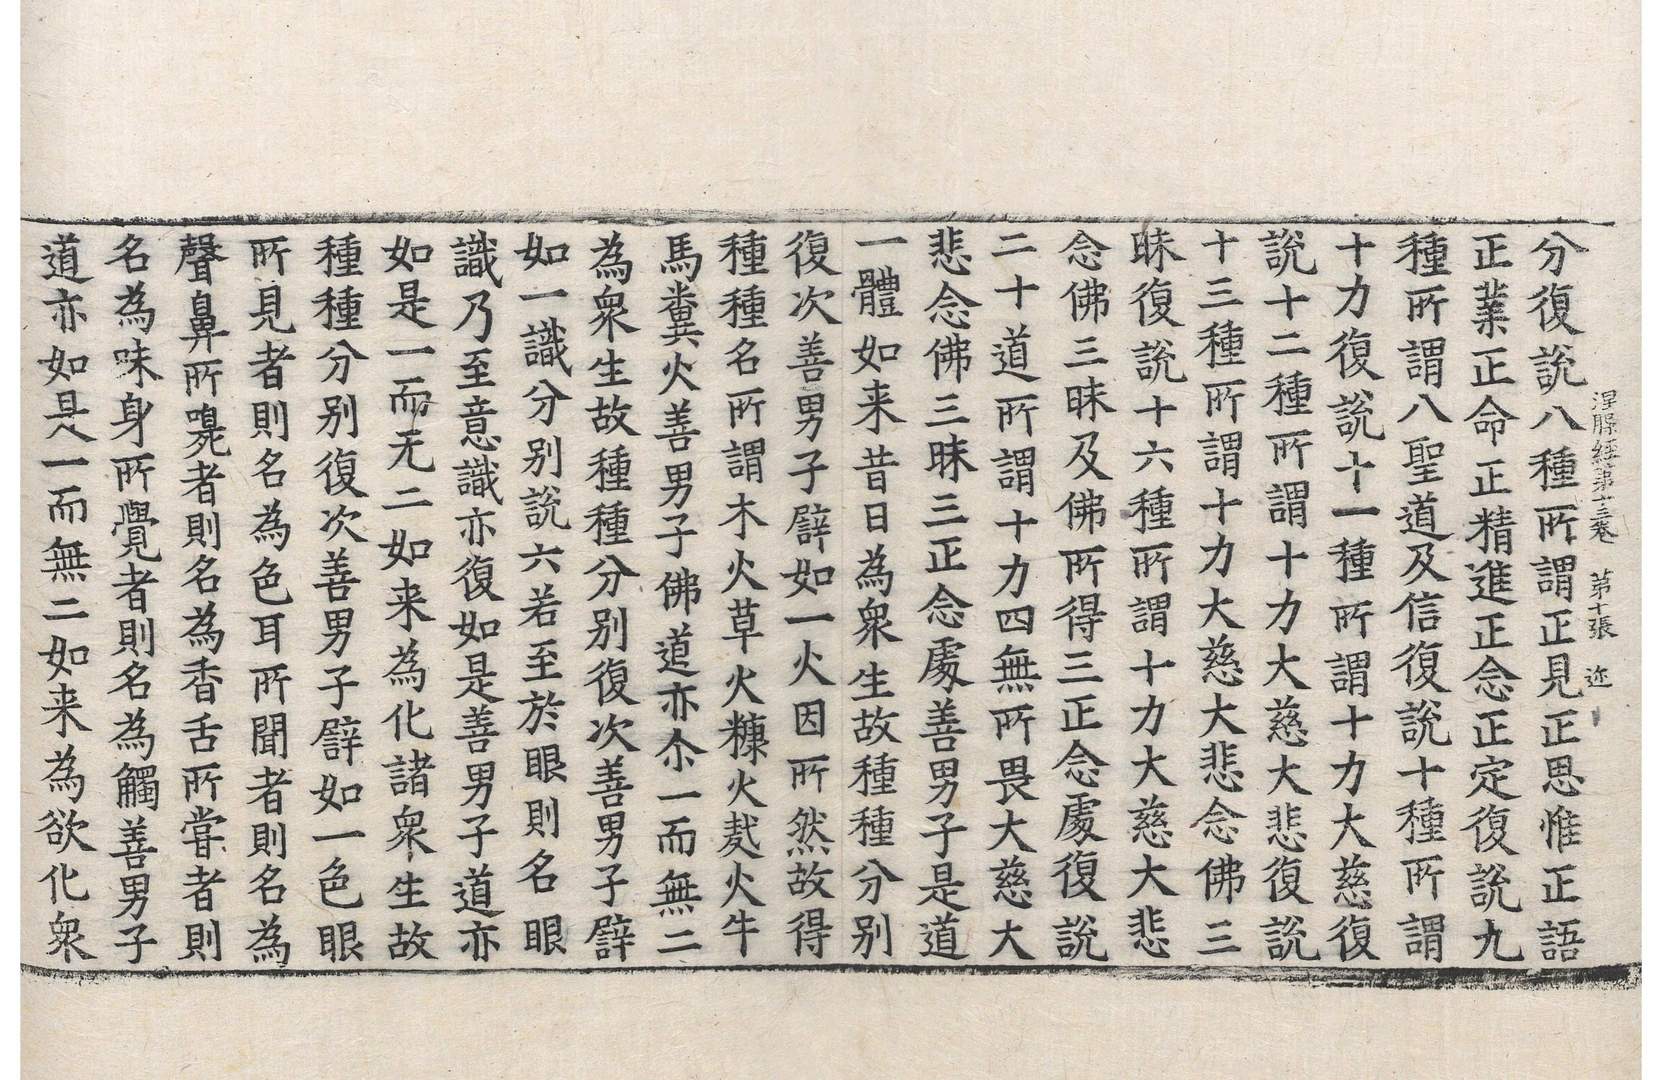 涅槃經第十三卷　第十張　迩
分復說八種所謂正見正思惟正語
正業正命正精進正念正定復說九
種所謂八聖道及信復說十種所謂
十力復說十一種所謂十力大慈復
說十二種所謂十力大慈大悲復說
十三種所謂十力大慈大悲念佛三
昧復說十六種所謂十力大慈大悲
念佛三昧及佛所得三正念處復說
二十道所謂十力四無所畏大慈大
悲念佛三昧三正念處善男子是道
一體如来昔日為衆生故種種分別
復次善男子譬如一火因所然故得
種種名所謂木火草火糠火𪍿火牛
馬糞火善男子佛道亦尒一而無二
為衆生故種種分別復次善男子譬
如一識分別說六若至於眼則名眼
識乃至意識亦復如是善男子道亦
如是一而无二如来為化諸衆生故
種種分別復次善男子譬如一色眼
所見者則名為色耳所聞者則名為
聲鼻所嗅者則名為香舌所甞者則
名為味身所覺者則名為觸善男子
道亦如是一而無二如来為欲化衆